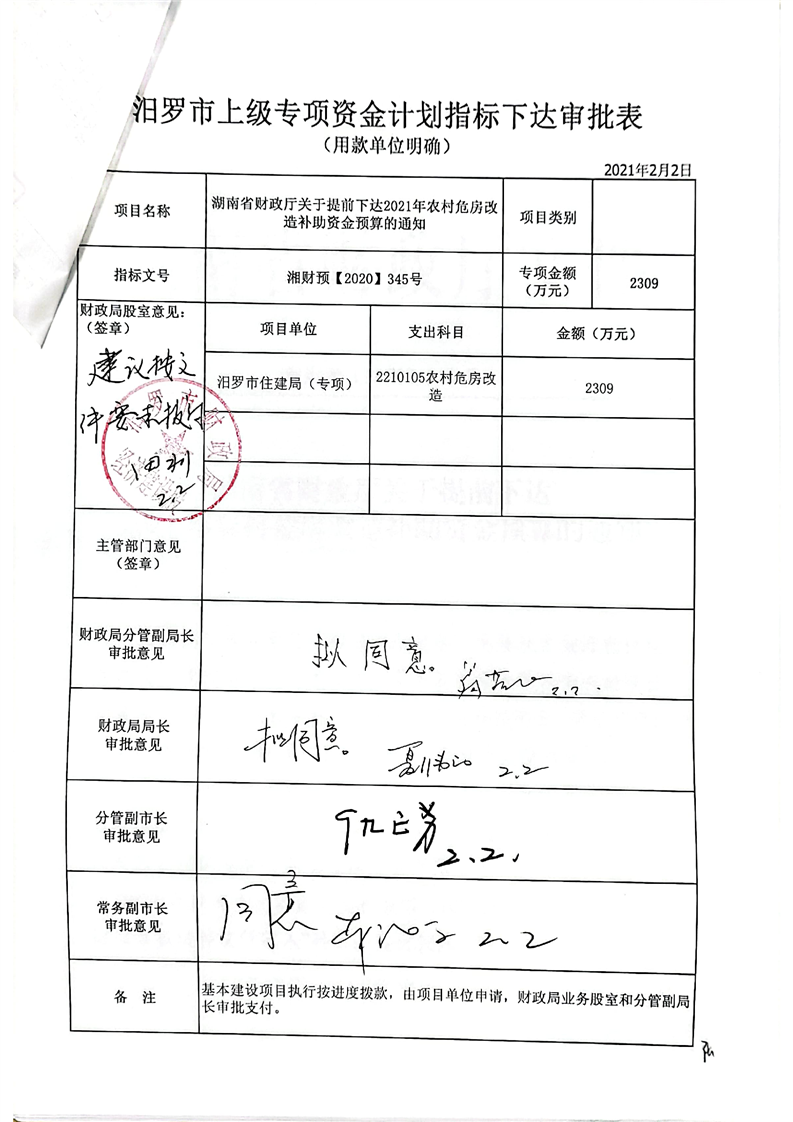 汨罗市上级专项资金计划指标下达审批表
（用款单位明确）
2021年2月2日
项目名称
湖南省财政厅关于提前下达2021年农村危房改
造补助资金预算的通知
项目类别
指标文号
湘财预【2020】345号
专项金额
（万元）
2309
财政局股室意见：
（签章）
项目单位
支出科目
金额（万元）
建议按文
件要求拨付
2.2
汨罗市住建局（专项）
2210105农村危房改
造
2309
汨罗市财政局
主管部门意见
（签章）
财政局分管副局长
审批意见
拟同意。
2.2.
财政局局长
审批意见
拟同意。
2.2
分管副市长
审批意见
2.2.
常务副市长
审批意见
同意
2.2
备 注
基本建设项目执行按进度拨款，由项目单位申请，财政局业务股室和分管副局
长审批支付。